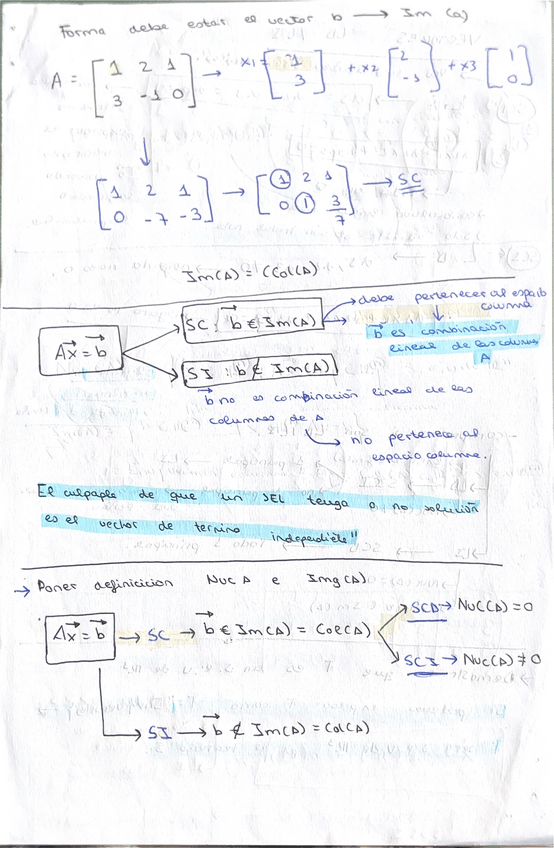 Forma debe estar el vector b → Im (a)
A = [1 2 1; 3 -1 0] → x1 = [-1; 3] + x2 [2; -1] + x3 [1; 0]
[1 2 1; 0 -7 -3] → [1 2 1; 0 1 3/7] → SC
Im(A) = CCol(A)
Ax = b
SC : b ∈ Im(A) → debe pertenecer al espacio columna
b es combinación lineal de las columnas A
SI : b ∉ Im(A)
b no es combinación lineal de las
columnas de A
→ no pertenece al
espacio columna.
El culpable de que un SEL tenga o no solución
es el vector de termino independiente"
→ Poner definicicion Nuc A e Img(A)
Ax = b → SC → b ∈ Im(A) = Col(A)
SCD → Nuc(A) = 0
SCI → Nuc(A) ≠ 0
→ SI → b ∉ Im(A) = Col(A)